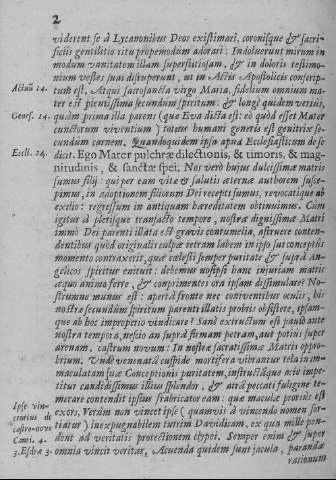 2
viderent se à Lycaonibus Deos existimari, coronisque & sacri-
ficiis gentilitio ritu propemodum adorari: Indoluerunt mirum in
modum vanitatem illam superstitiosam, & in doloris testimo-
nium vestes suas disruperunt, ut in Actis Apostolicis conscrip-
Actuũ 14. tum est. Atqui sacrosancta virgo Maria, fidelium omnium ma-
ter est plenissima secundum spiritum: & longè quidem verius,
Genes. 14. quàm prima illa parens (quæ Eva dicta est: eò quòd esset Mater
cunctorum viventium) totius humani generis est genitrix se-
cundum carnem. Quandoquidem ipsa apud Ecclesiasticum de se
Eccli. 24. dicit. Ego Mater pulchræ dilectionis, & timoris, & mag-
nitudinis, & sanctæ spei. Nos verò hujus dulcissimæ matris
sumus filij: qui per eam vitæ & salutis æternæ auroram suspe-
ximus, in adoptionem filiorum Dei recepti sumus, revocatique ab
exilio: regressum in antiquam hæreditatem obtinuimus. Con-
tigit à plerisque transacto tempore, nostræ dignissimæ Matri
immò Dei parenti illata est gravis contumelia, astruere conten-
dentibus quòd originalis culpæ tetram labem in ipso sui conceptûs
momento contraxerit, quæ cœlesti semper puritate & supra An-
gelicos spiritus enituit: debemus nosipsi hanc injuriam matris
æquo animo ferre, & comprimentes ora ipsam dissimulare? No-
strumne munus est: aperta fronte nec conniventibus oculis, his
nostræ secundùm spiritum parenti illatis probris obsistere, ipsam-
que ab hoc improperio vindicare? Sanè extructum est paulò ante
nostra tempora, nescio an supra firmam petram, aut potiùs super
arenam, castrum novum: In nostræ sacratissimæ Matris oppro-
brium. Unde venenatâ cuspide mortifera vibrantur tela in im-
maculatam suæ Conceptionis puritatem, instructâque acie impe-
titur candidissimus illius splendor, & atrâ peccati fuligine te-
merare contendit ipsius fabricator eam: quæ maculæ prorsùs est
Ipse vin- exors, Verùm non vincet ipse (quamvis à vincendo nomen sor-
centius de
castro-novo tiatur) inexpugnabilem turrim Davidicam, ex qua mille pen-
Canti. 4. dent ad veritatis protectionem clypei. Semper enim & super
3. Esdræ 3. omnia vincit veritas, Acuenda quidem sunt jacula, paranda
rationum